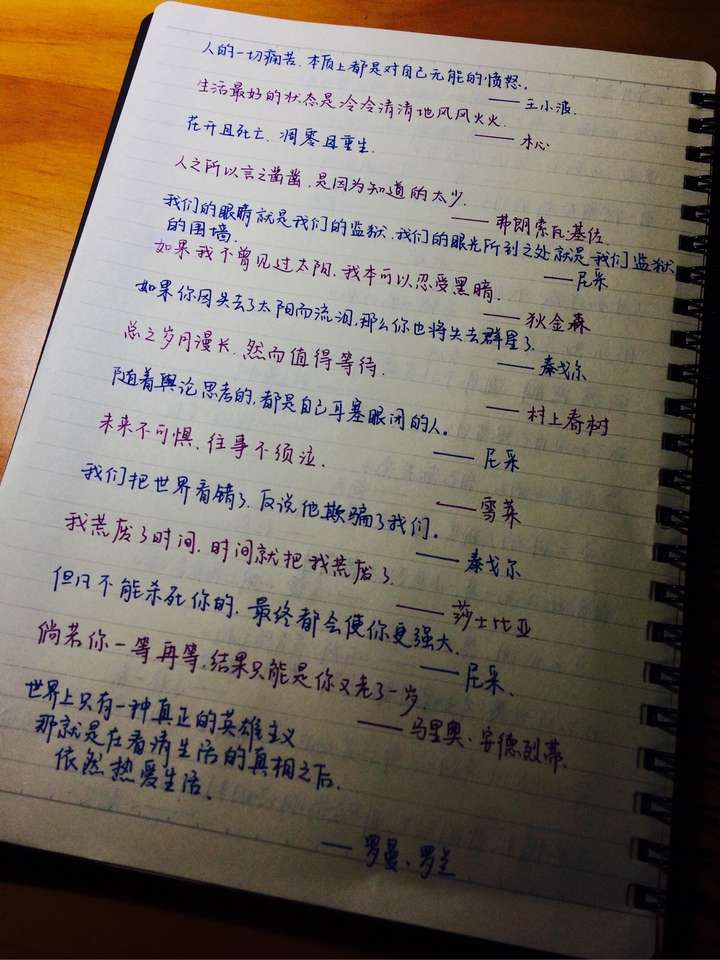 人的一切痛苦、本质上都是对自己无能的愤怒。
—— 王小波.
生活最好的状态是冷冷清清地风风火火.
—— 木心
花开且死亡、凋零且重生.
人之所以言之凿凿、是因为知道的太少.
—— 弗朗索瓦·基佐.
我们的眼睛就是我们的监狱、我们的眼光所到之处就是我们监狱
的围墙.
—— 尼采
如果我不曾见过太阳、我本可以忍受黑暗.
—— 狄金森
如果你因失去了太阳而流泪,那么你也将失去群星了.
—— 泰戈尔
总之岁月漫长、然而值得等待.
—— 村上春树
随着舆论思考的、都是自己耳塞眼闭的人。
—— 尼采
未来不可惧、往事不须泣.
—— 雪莱
我们把世界看错了、反说他欺骗了我们。
—— 泰戈尔
我荒废了时间、时间就把我荒废了.
—— 莎士比亚
但凡不能杀死你的、最终都会使你更强大.
—— 尼采.
倘若你一等再等、结果只能是你又老了一岁.
—— 马里奥·安德烈蒂.
世界上只有一种真正的英雄主义
那就是在看清生活的真相之后.
依然热爱生活.
—— 罗曼、罗兰